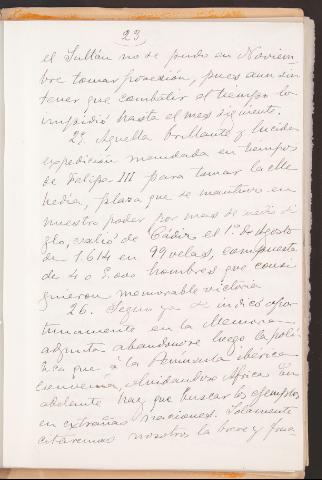 23
el Sultán no se pudo en Noviem-
bre tomar posesión, pues aun sin
tener que combatir el tiempo lo
impidió hasta el mes siguiente.
25. Aquella brillante y lucida
expedición mandada en tiempos
de Felipe III para tomar la Me
hedia, plaza que se mantuvo en
nuestro poder por mas de medio si
glo, salió de Cádiz el 1º de Agosto
de 1.614 en 99 velas, compuesta
de 4 o 5.000 hombres que consi
guieron memorable victoria
26. Segun ya se indicó opor-
tunamente en la Memoria
adjunta abandonose luego la polí-
tica que á la Península ibérica
convenia, olvidandose Africa. En
adelante hay que buscar los ejemplos
en extrañas naciones. Solamente
citaremos nosotros la breve y